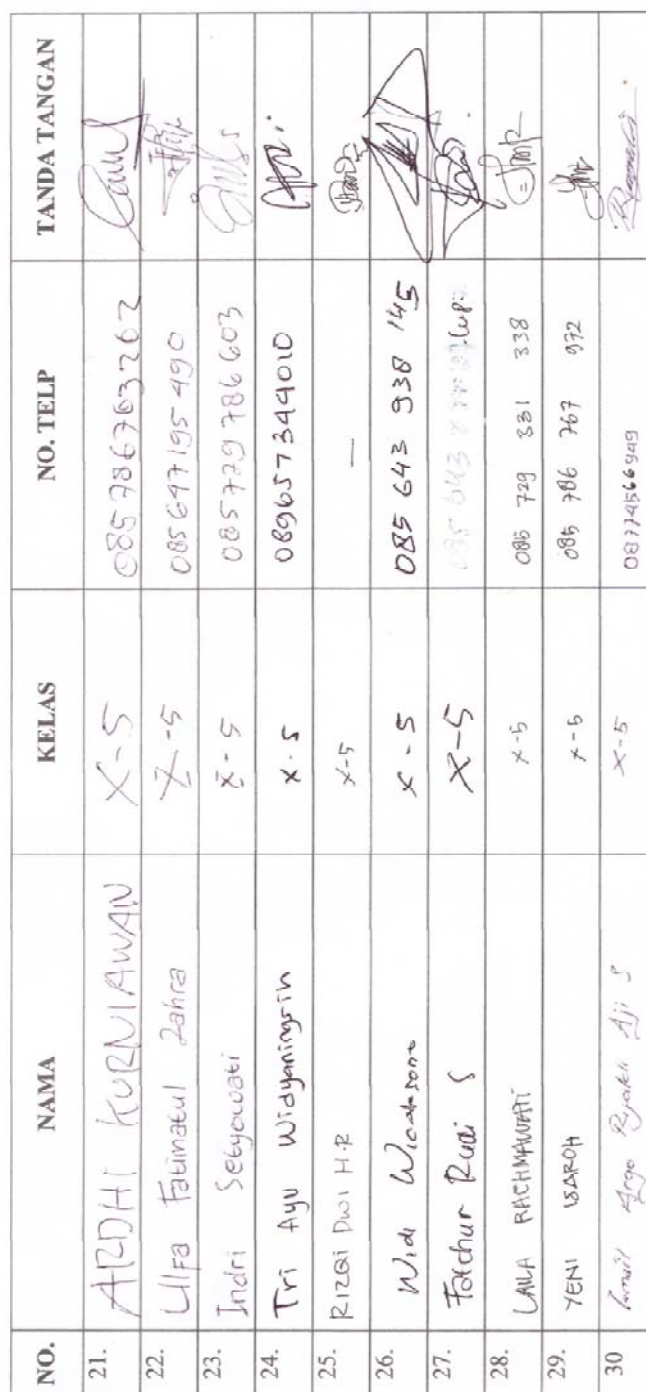 NO. NAMA KELAS NO. TELP TANDA TANGAN
21. ARDHI KURNIAWAN X-5 085786763262
22. Ulfa Fatimatul Zahra X-5 085647195490
23. Indri Setyowati X-5 085729786603
24. Tri Ayu Widyaningsih X-5 089657344010
25. RIZQI DWI H.R X-5 —
26. Widi Wicaksono X-5 085 643 938 145
27. Fatchur Rudi S X-5 085 643
28. LAILA RACHMAWATI X-5 085 729 331 338
29. YENI ISAROH X-5 085 786 767 972
30 Ismail Argo Aji S X-5 08774566949